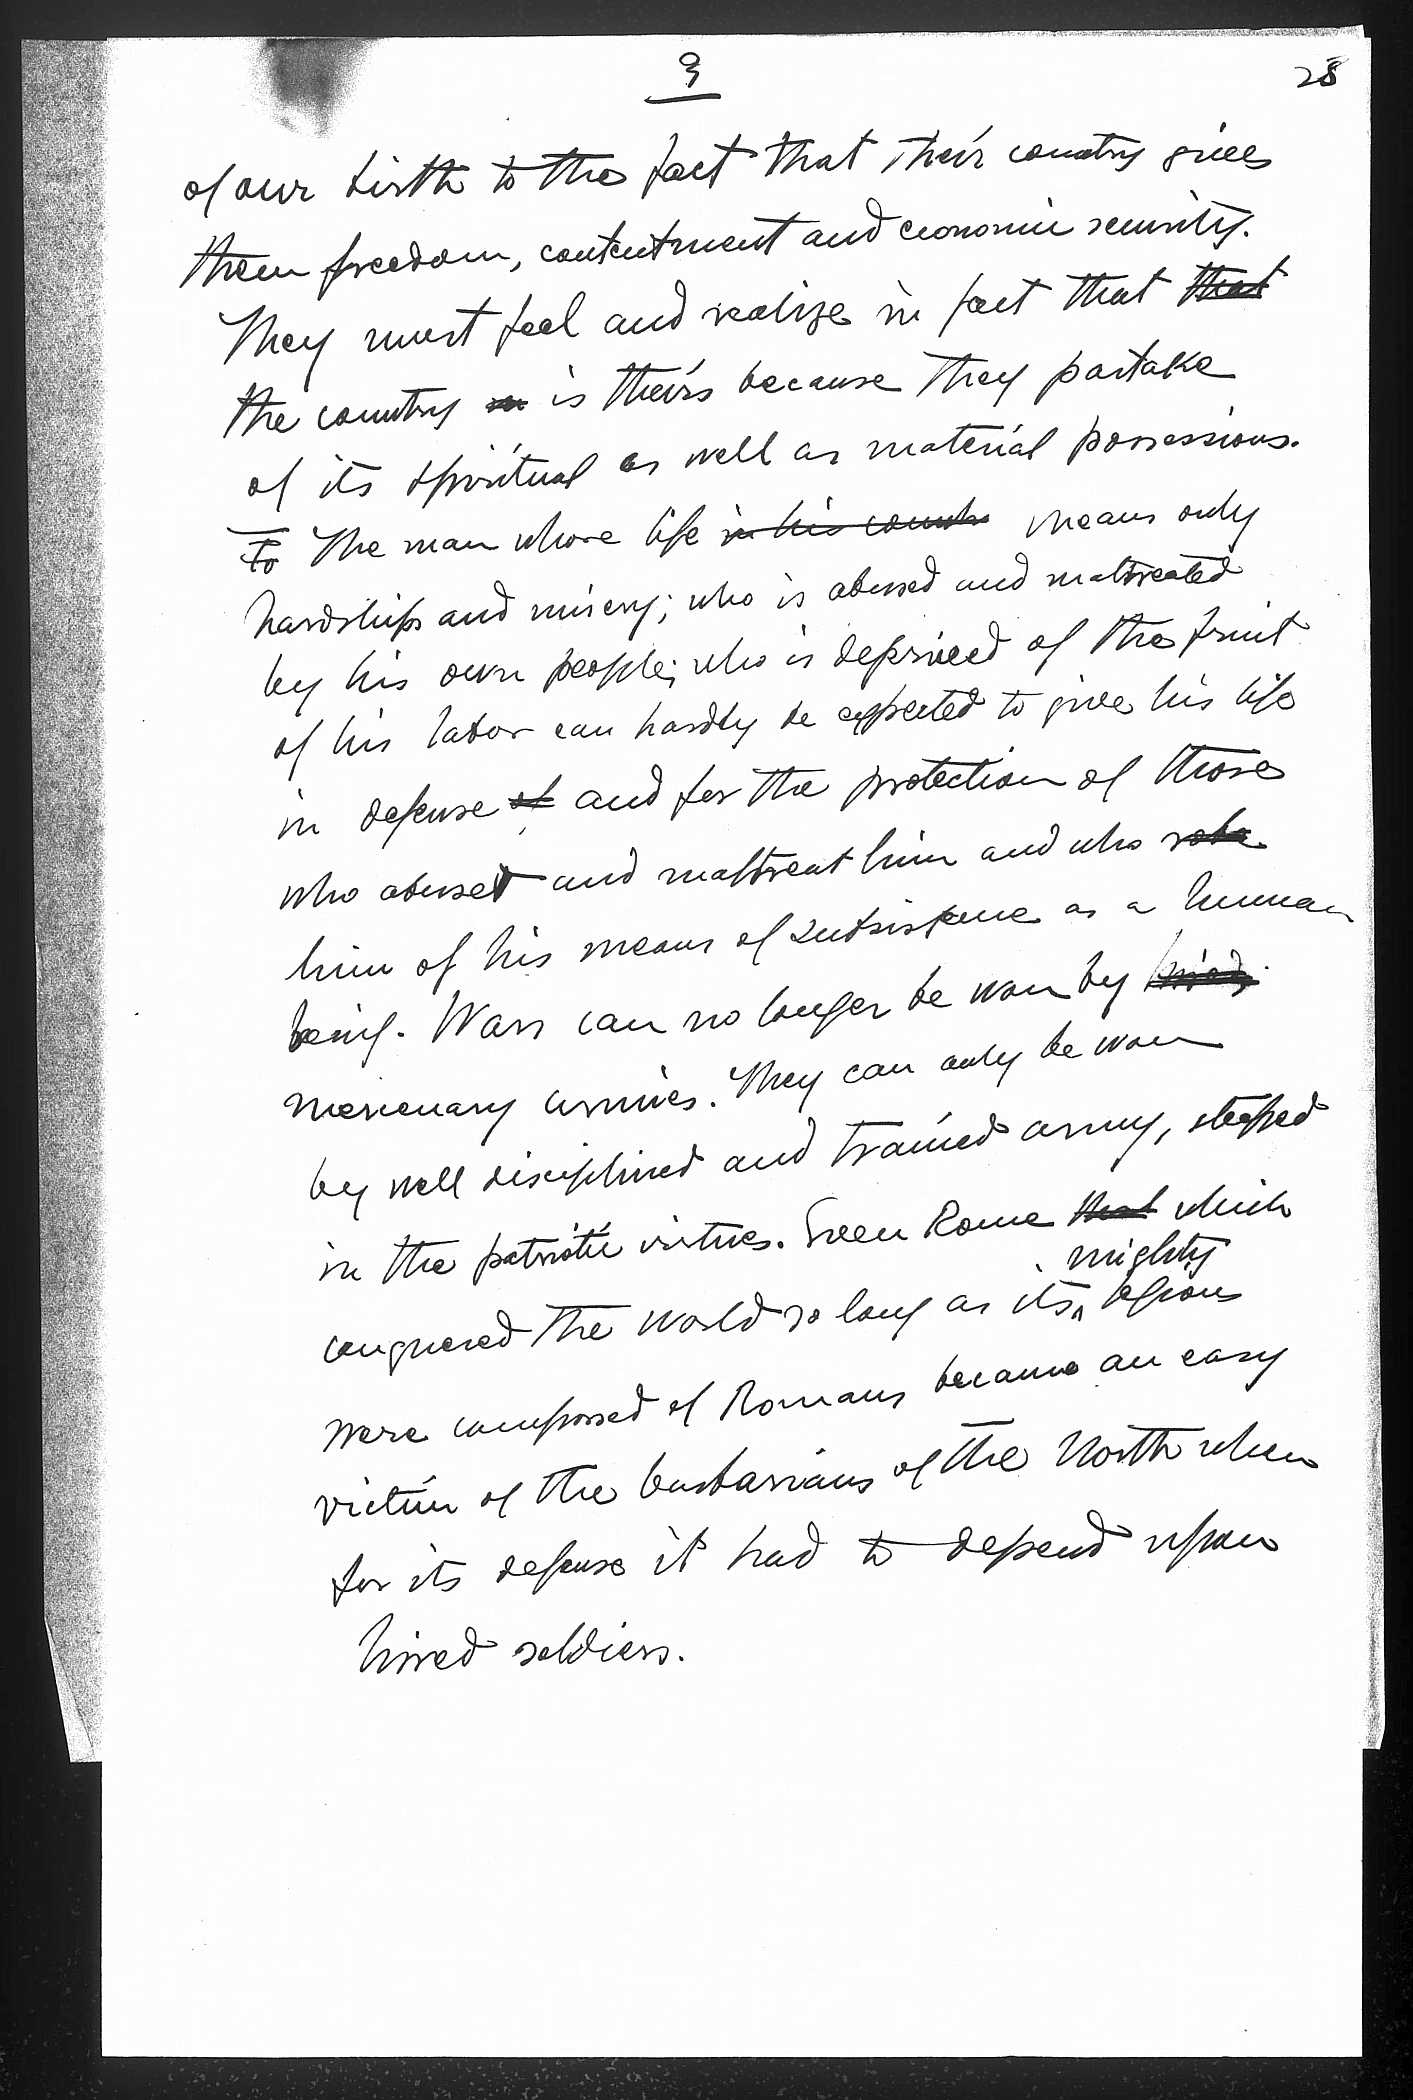 9
28
of our birth to the fact that their country gives
them freedom, contentment and economic security.
They must feel and realize in fact that that
the country is their's because they partake
of its spiritual as well as material possessions.
To The man whose life in his count means only
hardships and misery; who is abused and maltreated
by his own people; who is deprived of the fruit
of his labor can hardly be expected to give his life
in defense of and for the protection of those
who abuse and maltreat him and who robs
him of his means of subsistence as a human
being. Wars can no longer be won by
mercenary armies. They can only be won
by well disciplined and trained army, steeped
in the patriotic virtues. Even Rome that which
mighty
conquered the world so long as its legions
were composed of Romans became an easy
victim of the barbarians of the North when
for its defense it had to depend upon
hired soldiers.